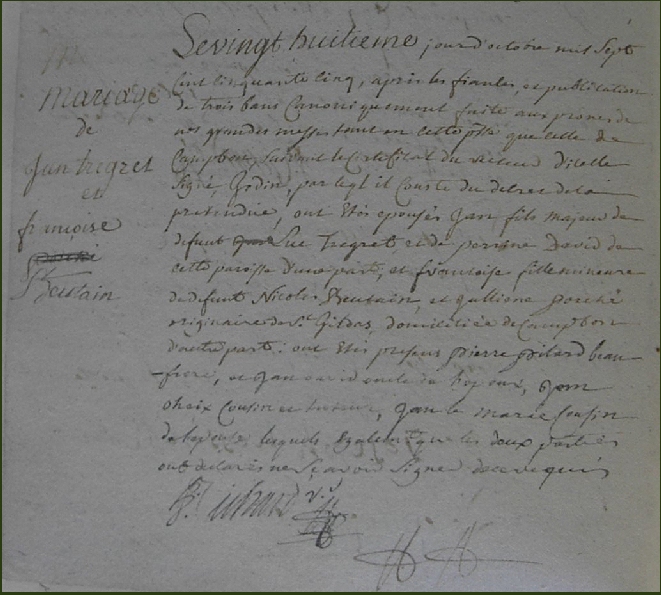 Mariage
de
Jan tregret
et
françoise
Beutain
Le vingt huitieme jour d'octobre mil sept
cent cinquante cinq, après les fiancles, et publication
de trois bans Canoniquement faite aux prones de
nos grandes messes tant en cette psse que celle de
Campbon, suivant le Certificat du recteur d'icelle
signé Godin, par lequel il Conste du decret de la
pretendüe, ont étés epousés Jan fils majeur de
defunt Luc Tregret et de perrine David de
cette paroisse d'une part, et françoise fille mineure
de defunt Nicolas Beutain, et Jullienne porché
originaire de St Gildas, domiciliée de Campbon
d'autre part: ont étés presens pierre pilard beau
frere, et Jan david oncle de l'epoux, Jan
choix Cousin et tuteur, Jan le marié Cousin
de l'epouse, lesquels egalement que les deux parties
ont declarés ne sçavoir signer de ce requis